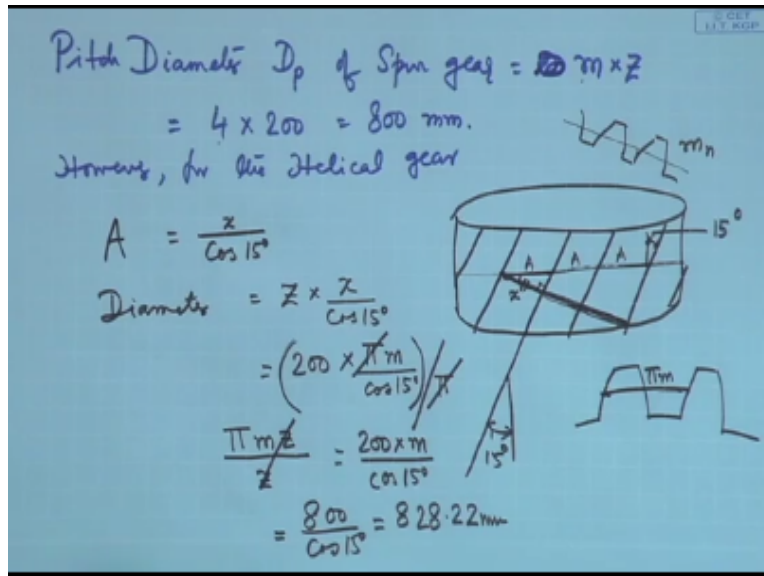 © CET
I.I.T. KGP
Pitch Diameter Dp of Spur gear = m × Z
= 4 × 200 = 800 mm.
However, for the Helical gear
mn
A = x / cos 15°
15°
A A A
x
Diameter = Z × x / cos 15°
= (200 × πm / cos 15°) / π
πm
πmz / z = 200 × m / cos 15°
15°
= 800 / cos 15° = 828.22 mm